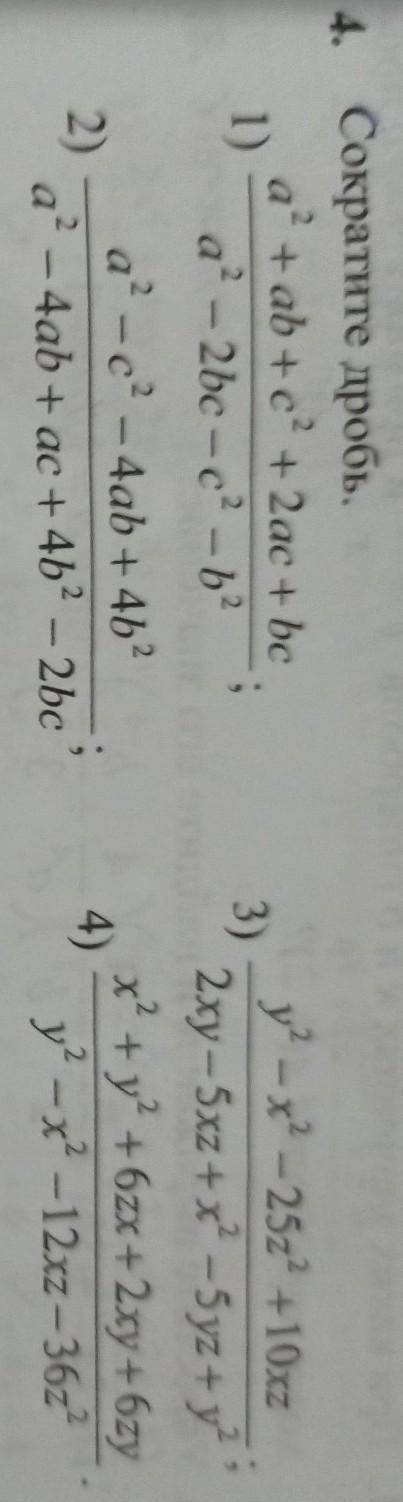 4. Сократите дробь.
1) \frac{a^2 + ab + c^2 + 2ac + bc}{a^2 - 2bc - c^2 - b^2};
2) \frac{a^2 - c^2 - 4ab + 4b^2}{a^2 - 4ab + ac + 4b^2 - 2bc};
3) \frac{y^2 - x^2 - 25z^2 + 10xz}{2xy - 5xz + x^2 - 5yz + y^2};
4) \frac{x^2 + y^2 + 6zx + 2xy + 6zy}{y^2 - x^2 - 12xz - 36z^2}.